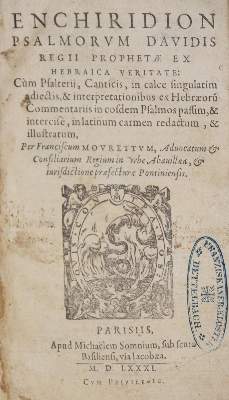 ENCHIRIDION
PSALMORVM DAVIDIS
REGII PROPHETÆ EX
HEBRAICA VERITATE:
Cùm Psalterii, Canticis, in calce singulatim
adiectis, & interpretationibus ex Hebræorũ
Commentariis in eosdem Psalmos passim, &
intercisè, in latinum carmen redactum, &
illustratum.
Per Franciscum MOVRETTVM, Aduocatum &
Consiliarium Regium in Vrbe
iurisdictione præfecturæ
PARISIIS,
Apud Michaëlem Somnium, sub scuto
Basiliensi, via Iacobæa.
M. D. LXXXI.
CVM PRIVILEGIO.
FRANZISKANERKLOSTER
DETTELBACH